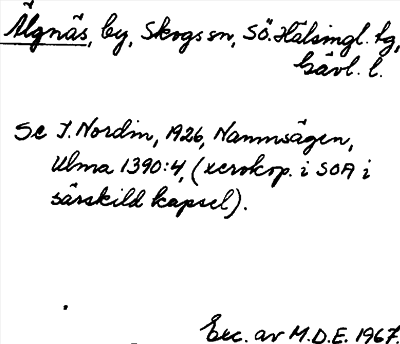 Älgnäs, by, Skogs sn, Sö. Hälsingl. tg,
Gävl. l.
Se J. Nordin, 1926, Namnsägen,
Ulma 1390:4, (xerokop. i SOA i
särskild kapsel).
Exc. av M.D.E. 1967.